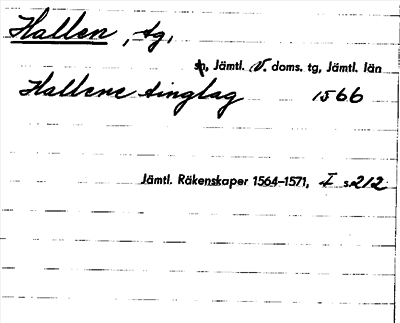 Hallen, tg,
sn, Jämtl. V. doms. tg, Jämtl. län
Hallene tinglag 1566
Jämtl. Räkenskaper 1564–1571, I s.212